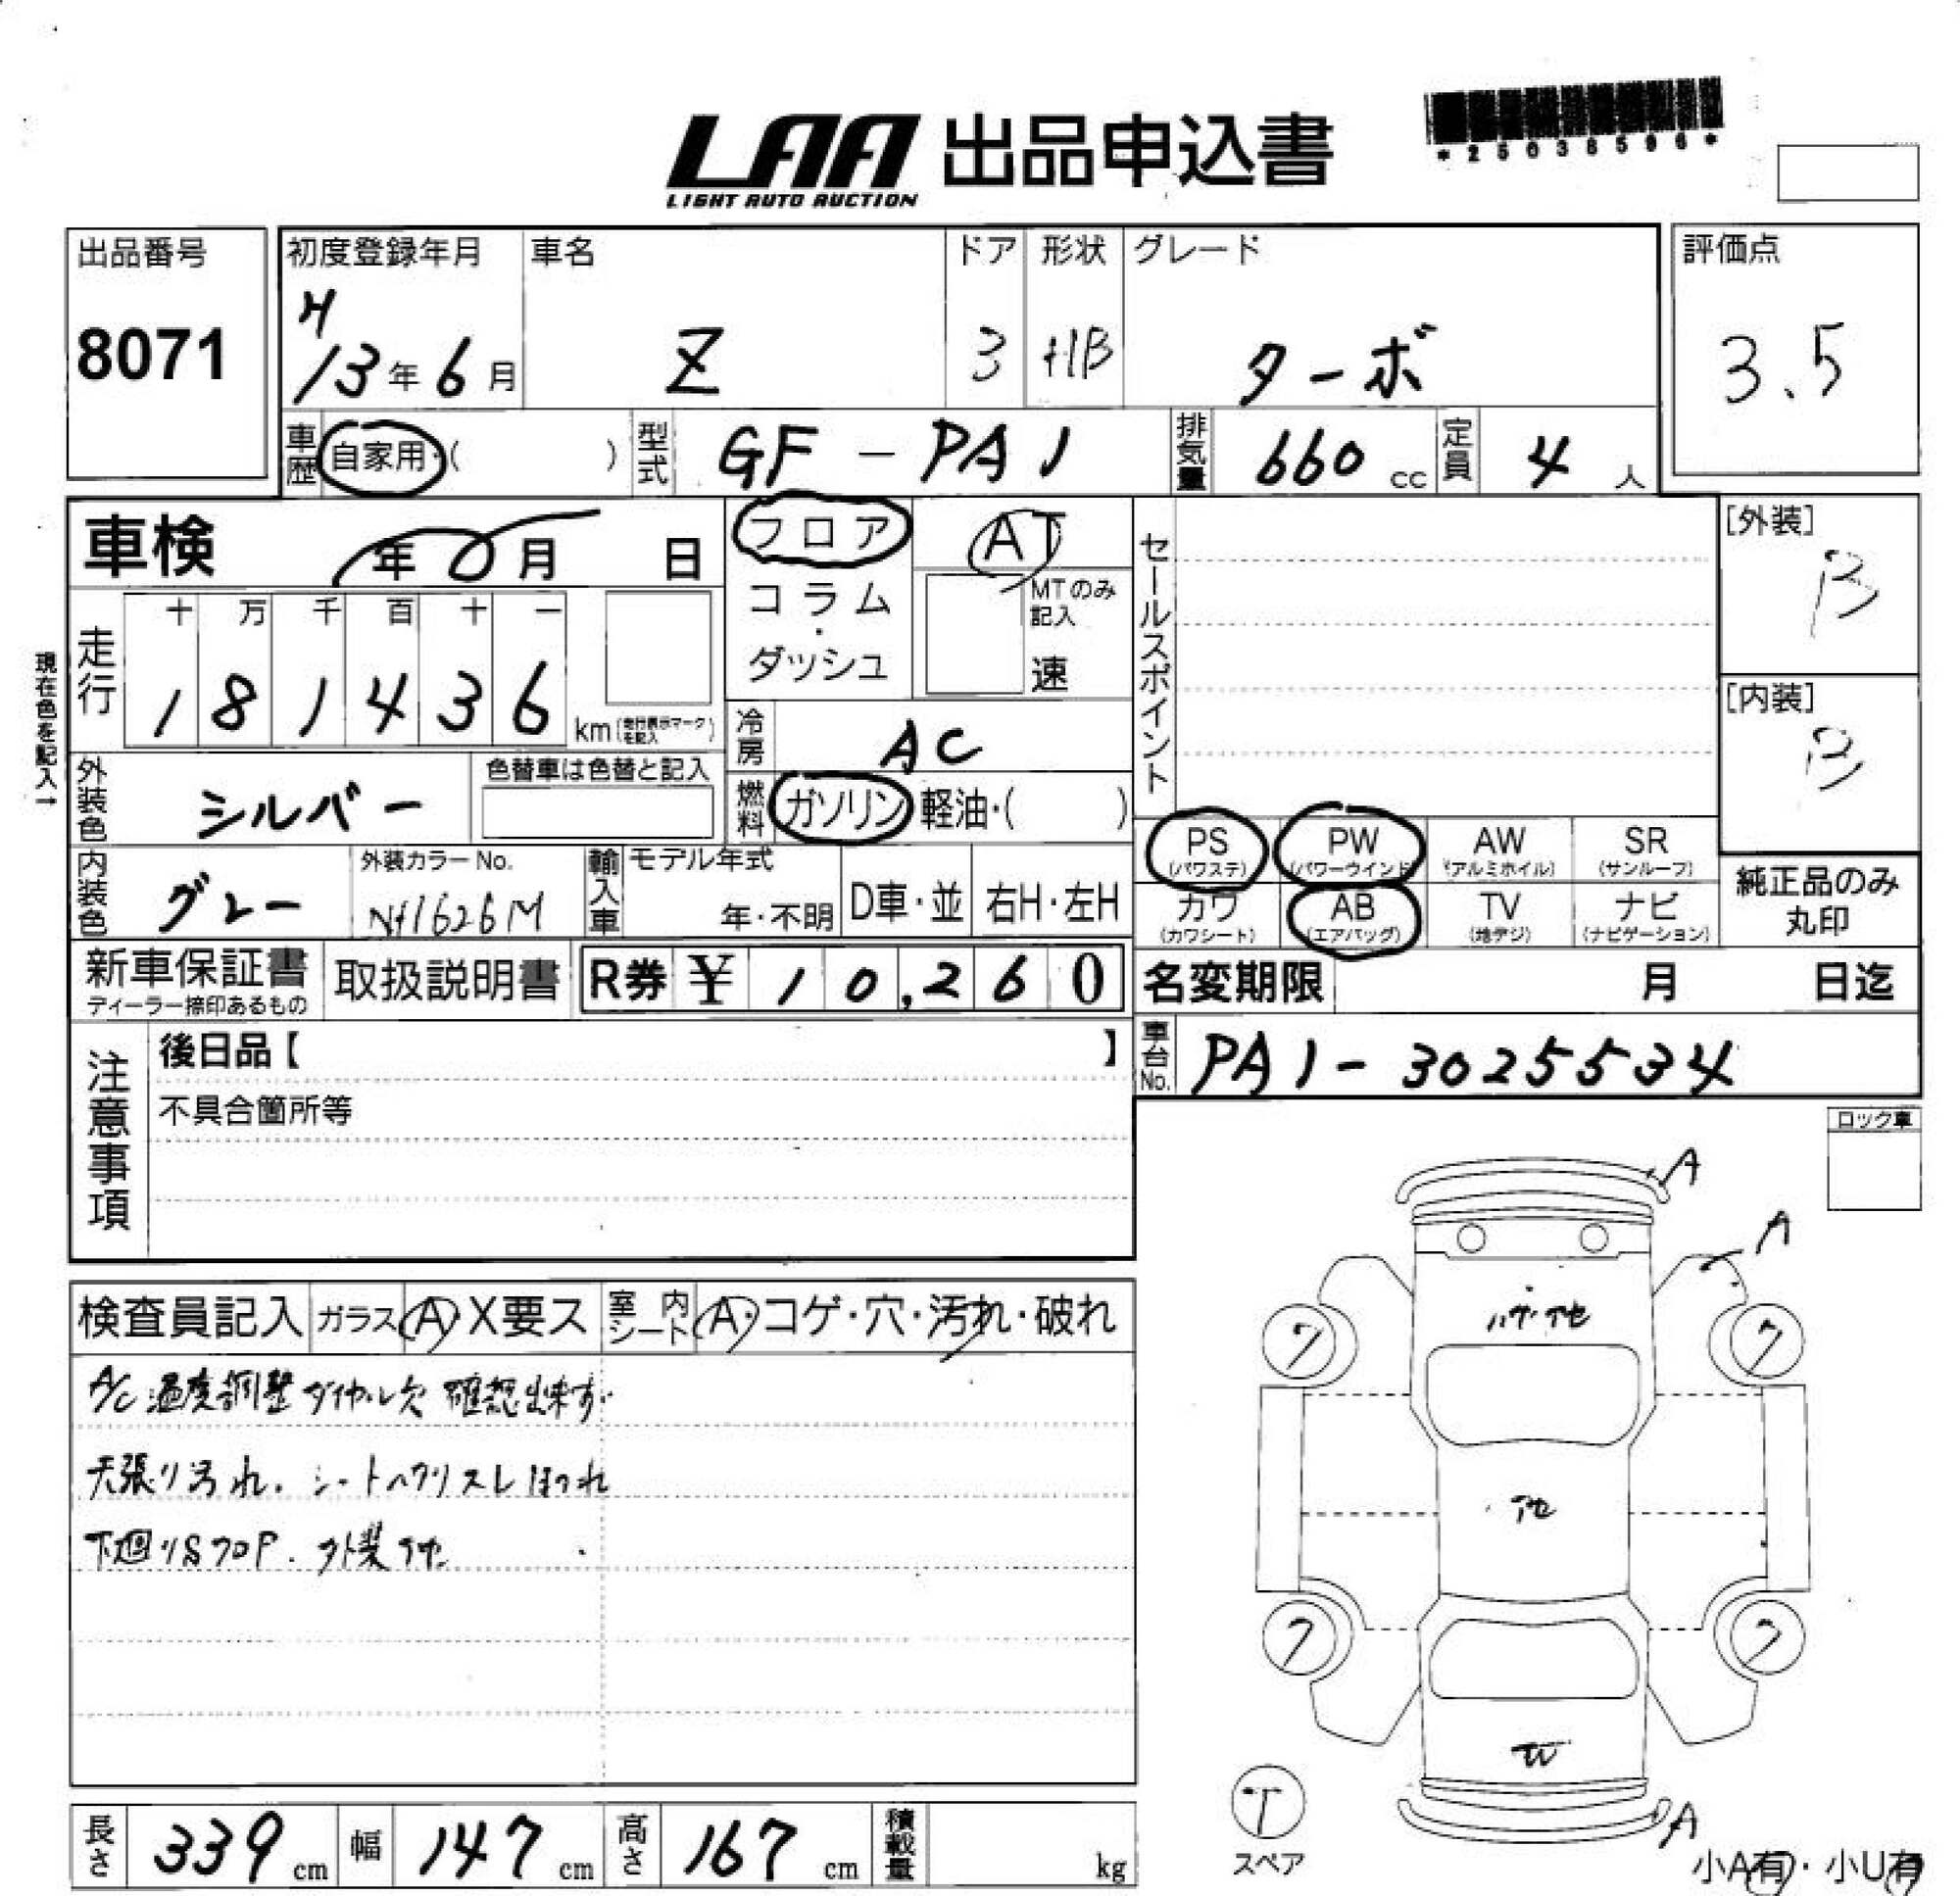 LAA 出品申込書
LIGHT AUTO AUCTION
*25038596*
出品番号
8071
初度登録年月
H13年6月
車名
Z
ドア
3
形状
HB
グレード
ターボ
評価点
3.5
車歴 自家用・( )
型式 GF-PA1
排気量 660 cc
定員 4 人
車検 年 月 日
フロア
コラム・ダッシュ
AT
MTのみ記入
速
セールスポイント
[外装]
B
[内装]
B
現在色を記入→
走行
十 万 千 百 十 一
1 8 1 4 3 6 km(走行表示マークを記入)
冷房 AC
外装色 シルバー
色替車は色替と記入
燃料 ガソリン 軽油・( )
PS (パワステ)
PW (パワーウインド)
AW (アルミホイル)
SR (サンルーフ)
カワ (カワシート)
AB (エアバッグ)
TV (地デジ)
ナビ (ナビゲーション)
純正品のみ丸印
内装色 グレー
外装カラーNo.
NH626M
輸入車
モデル年式
年・不明
D車・並
右H・左H
新車保証書
ディーラー捺印あるもの
取扱説明書
R券 ¥ 10,260
名変期限 月 日迄
車台No. PA1-3025534
注意事項
後日品【 】
不具合箇所等
ロック車
検査員記入
ガラス A・X要ス
室内シート A・コゲ・穴・汚れ・破れ
A/C 温度調整ダイヤル欠 確認出来ず
天張り汚れ. シートヘタリスレほつれ
下廻りSアロP. 外装
A
A
ワ
ワ
ワ
ワ
A
T
スペア
長さ 339 cm
幅 147 cm
高さ 167 cm
積載量 kg
小A有・小U有